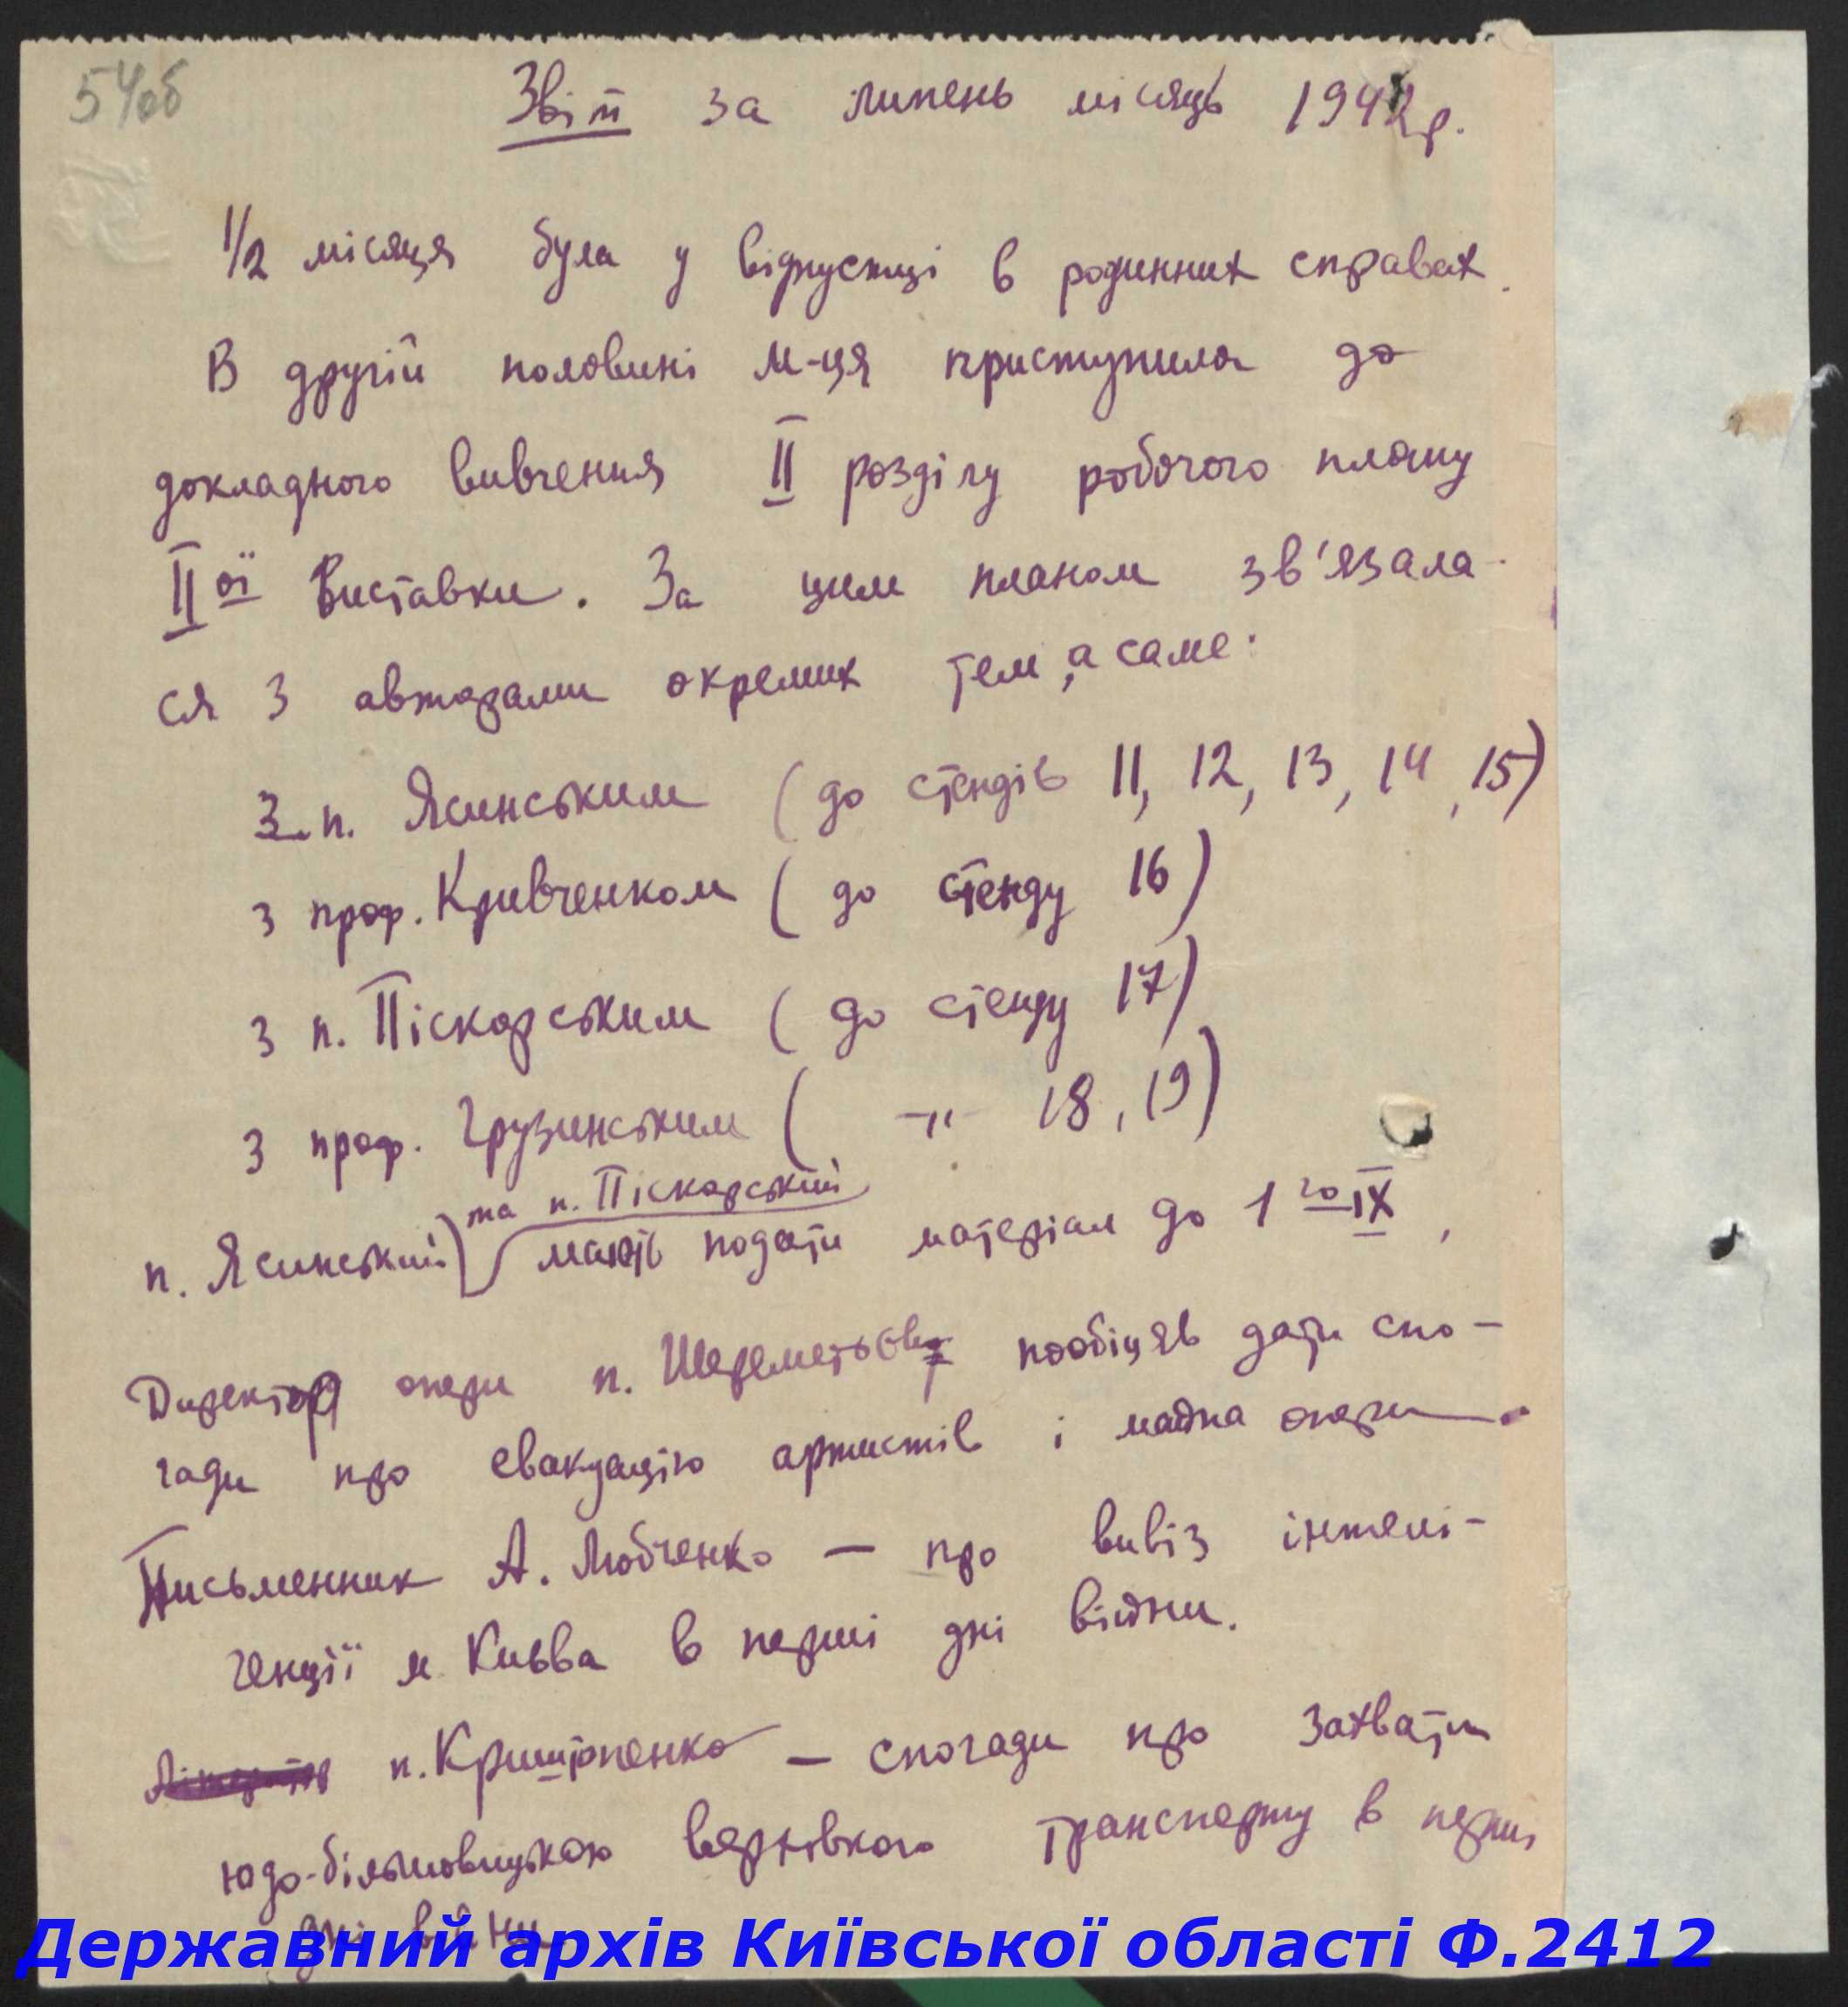 54об
Звіт за липень місяць 1942 р.
1/2 місяця була у відпустці в родинних справах.
В другій половині м-ця приступила до
докладного вивчення II розділу робочого плану
II ої Виставки. За цим планом зв'язала-
ся з авторами окремих тем, а саме:
З п. Ясинським (до стендів 11, 12, 13, 14, 15)
з проф. Кривченком (до стенду 16)
з п. Піскорським (до стенду 17)
з проф. Грузинським ( -"- 18, 19)
та п. Піскорський
п. Ясинський мають подати матеріал до 1 го IX,
Директор опери п. Шереметьєв пообіцяв дати спо-
гади про евакуацію артистів і майна опери.
Письменник А. Любченко — про вивіз інтелі-
генції м. Києва в перші дні війни.
п. Криштопенко — спогади про захвати
юдо-більшовицькою верхівкою транспорту в перші
дні війни
Державний архів Київської області Ф.2412